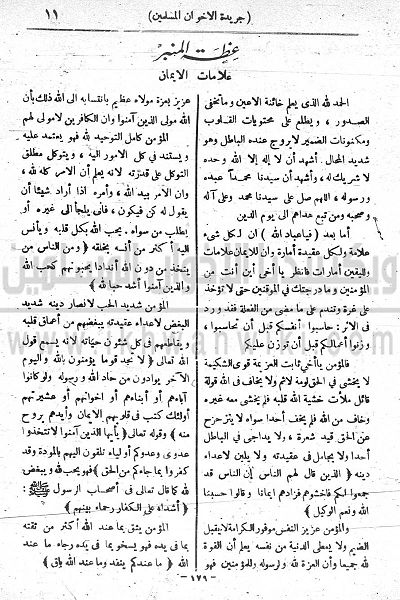 (جريدة الاخوان المسلمين) ١١
عظة المنبر
علامات الايمان
الحمد لله الذى يعلم خائنة الاعين وما تخفى
الصدور ، ويطلع على محتويات القلوب
ومكنونات الضمير لا يروج عنده الباطل وهو
شديد المحال . أشهد أن لا إله إلا الله وحده
لا شريك له ، وأشهد أن سيدنا محمداً عبده
ورسوله ، اللهم صل على سيدنا محمد وعلى آله
وصحبه ومن تبع هداهم الى يوم الدين
أما بعد (فياعباد الله) ان لكل شىء
علامة ولكل عقيدة أمارة وان للايمان علامات
واليقين أمارات فانظر يا أخى أين أنت من
المؤمنين وما درجتك فى الموقنين حتى لا تؤخذ
على غرة وتندم على ما مضى من الغفلة فقد ورد
فى الاثر : حاسبوا أنفسكم قبل أن تحاسبوا ،
وزنوا أعمالكم قبل أن توزن عليكم
فالمؤمن يا أخى ثابت العزيمة قوى الشكيمة
لا يخشى فى الحق لومة لائم ولا يخاف فى الله قولة
قائل ملأت خشية الله قلبه فلم يخشى معه غيره
وخاف من الله فلم يخف أحدا سواه لا يتزحزح
عن الحق قيد شعرة ، ولا يداجى فى الباطل
أحدا ولا يجامل فى عقيدته ولا يلين لاعداء
دينه ﴿ الذين قال لهم الناس إن الناس قد
جمعوا لكم فاخشوهم فزادهم ايمانا وقالوا حسبنا
الله ونعم الوكيل ﴾
والمؤمن عزيز النفس موفور الكرامة لا يقبل
الضيم ولا يعطى الدنية من نفسه يعلم أن القوة
لله جميعا وأن العزة لله ورسوله وللمؤمنين فهو
عزيز بعزة مولاه عظيم بانتسابه الى الله ذلك بأن
الله مولى الذين آمنوا وان الكافرين لا مولى لهم
المؤمن كامل التوحيد لله فهو يعتمد عليه
ويستند فى كل الامور اليه ، ويتوكل مطلق
التوكل على قدرته لانه يعلم أن الامر كله لله ،
وان الامر بيد الله ، وأمره اذا أراد شيئا أن
يقول له كن فيكون ، فانى يلجأ الى غيره أو
يطلب من سواه . يحب الله بكل قلبه ويأنس
اليه أكثر من أنسه بخلقه ﴿ ومن الناس من
يتخذ من دون الله أندادا يحبونهم كحب الله
والذين آمنوا أشد حبا لله ﴾
المؤمن شديد الحب لانصار دينه شديد
البغض لاعداء عقيدته يبغضهم من أعماق قلبه
ويقاطعهم فى كل شئون حياته لانه يسمع قول
الله تعالى ﴿ لا تجد قوما يؤمنون بالله واليوم
الآخر يوادون من حاد الله ورسوله ولو كانوا
آباءهم أو أبناءهم أو اخوانهم أو عشيرتهم
أولئك كتب فى قلوبهم الايمان وأيدهم بروح
منه ﴾ وقوله تعالى ﴿ يا أيها الذين آمنوا لا تتخذوا
عدوى وعدوكم أولياء تلقون اليهم بالمودة وقد
كفروا بما جاءكم من الحق ﴾ فهو يحب لله ويبغض
لله كما قال تعالى فى أصحاب الرسول ﷺ :
﴿ أشداء على الكفار رحماء بينهم ﴾
المؤمن يثق بما عند الله أكثر من ثقته
بما فى يده فهو يسخو بما فى يده رجاء ما عند
الله ﴿ ما عندكم ينفد وما عند الله باق ﴾
- ١٧٩ -